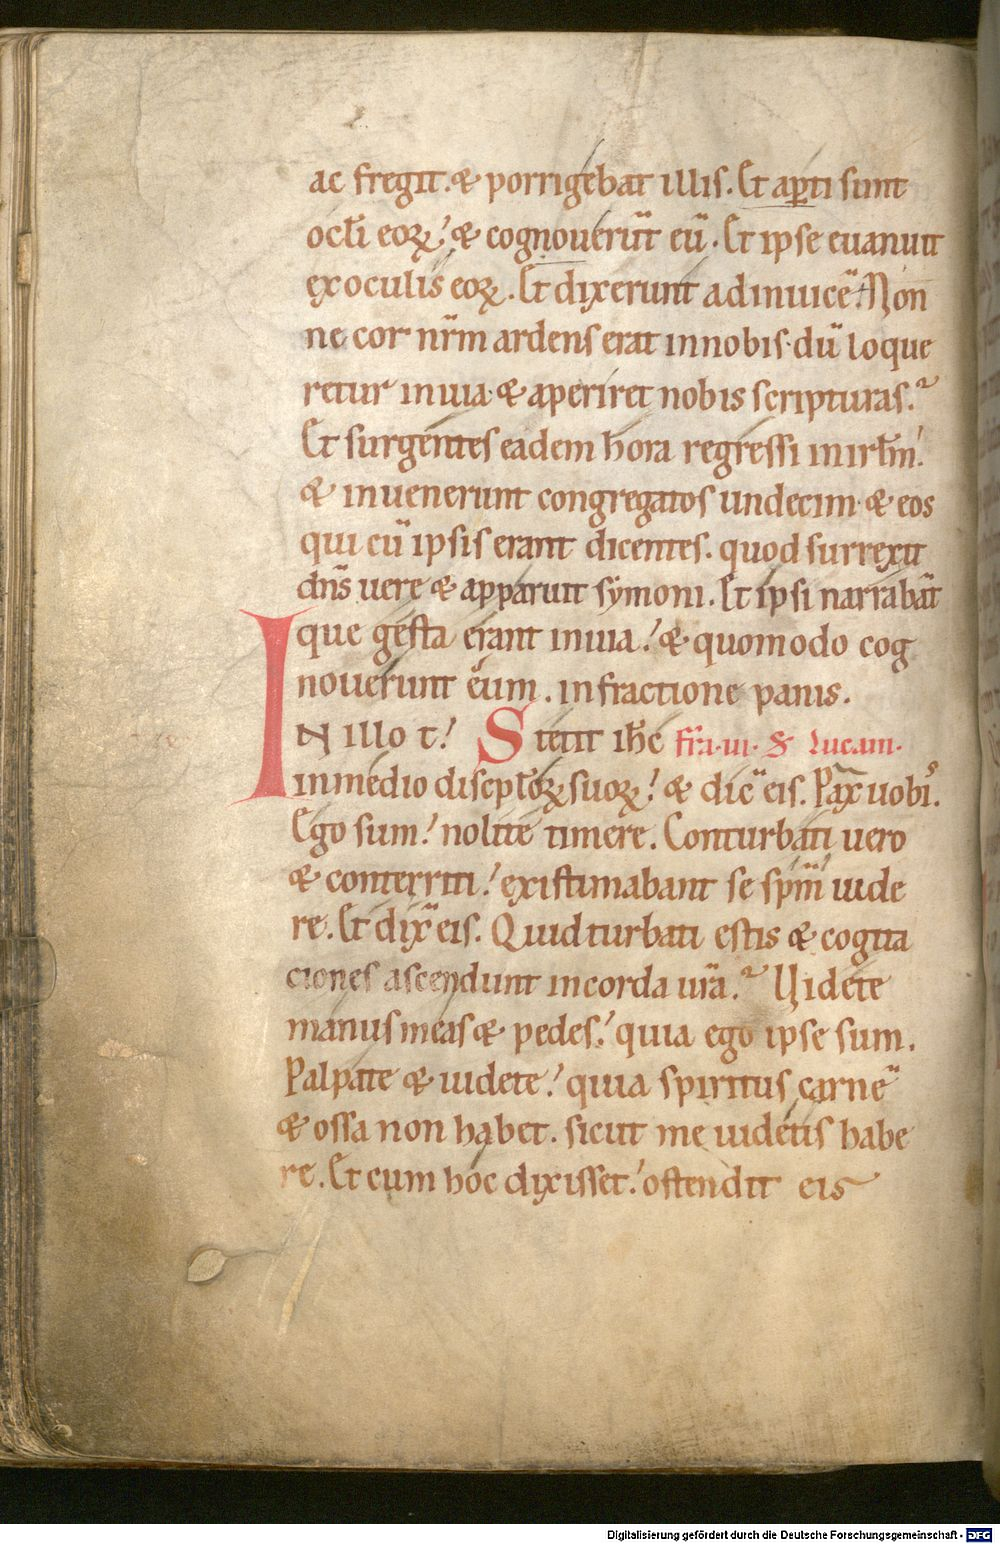 ac fregit. & porrigebat illis. Et ap̲ti sunt
ocl̄i eoꝝ. & cognouerūt eū. Et ipse euanuit
ex oculis eoꝝ. Et dixerunt adinuicē. Non
ne cor nr̄m ardens erat innobis. dū loque
retur inuia. & aperiret nobis scripturas.
Et surgentes eadem hora regressi inirl̄m.
& inuenerunt congregatos undecim. & eos
qui cū ipsis erant dicentes. quod surrexit
dn̄s uere & apparuit symoni. Et ipsi narrabāt
que gesta erant inuia. & quomodo cog
nouerunt eum. infractione panis.
IN illo t. Stetit ih̄c fr̄a.iii. S Lucam.
inmedio discipl̄oꝝ suoꝝ. & dic̄ eis. Pax uobis.
Ego sum. nolite timere. Conturbati uero
& conterriti. existimabant se sp̄m uide
re. Et dix̄ eis. Quid turbati estis & cogita
ciones ascendunt incorda ur̄a. Uidete
manus meas & pedes. quia ego ipse sum.
Palpate & uidete. quia spiritus carnē
& ossa non habet. sicut me uidetis habe
re. Et cum hoc dixisset. ostendit eis
Digitalisierung gefördert durch die Deutsche Forschungsgemeinschaft - DFG